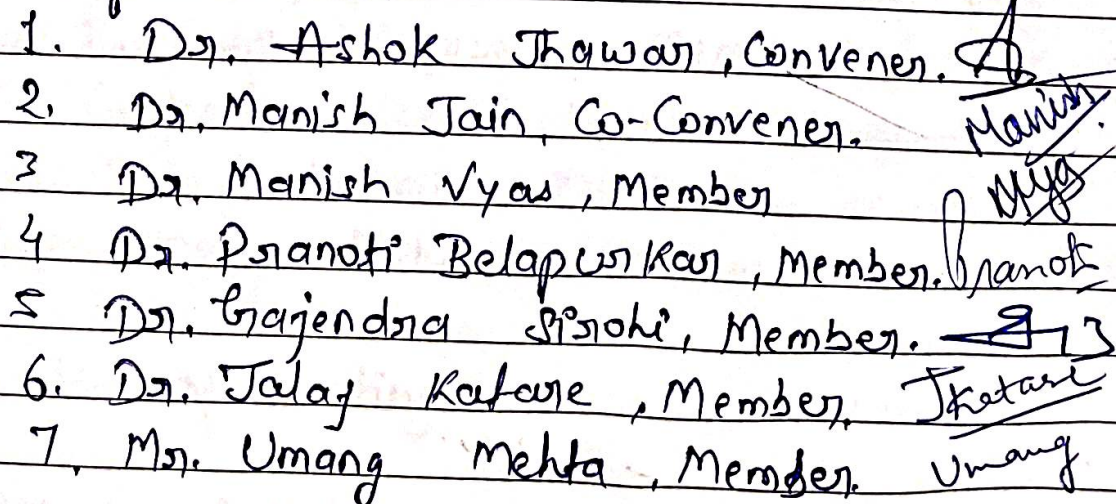 1. Dr. Ashok Jhawar, Convener.
2. Dr. Manish Jain, Co-Convener. Manish
3 Dr. Manish Vyas, Member
4 Dr. Pranoti Belapurkar, Member. Pranoti
5 Dr. Gajendra Sirohi, Member.
6. Dr. Jalaj Katare, Member. JKatare
7. Mr. Umang Mehta, Member. Umang